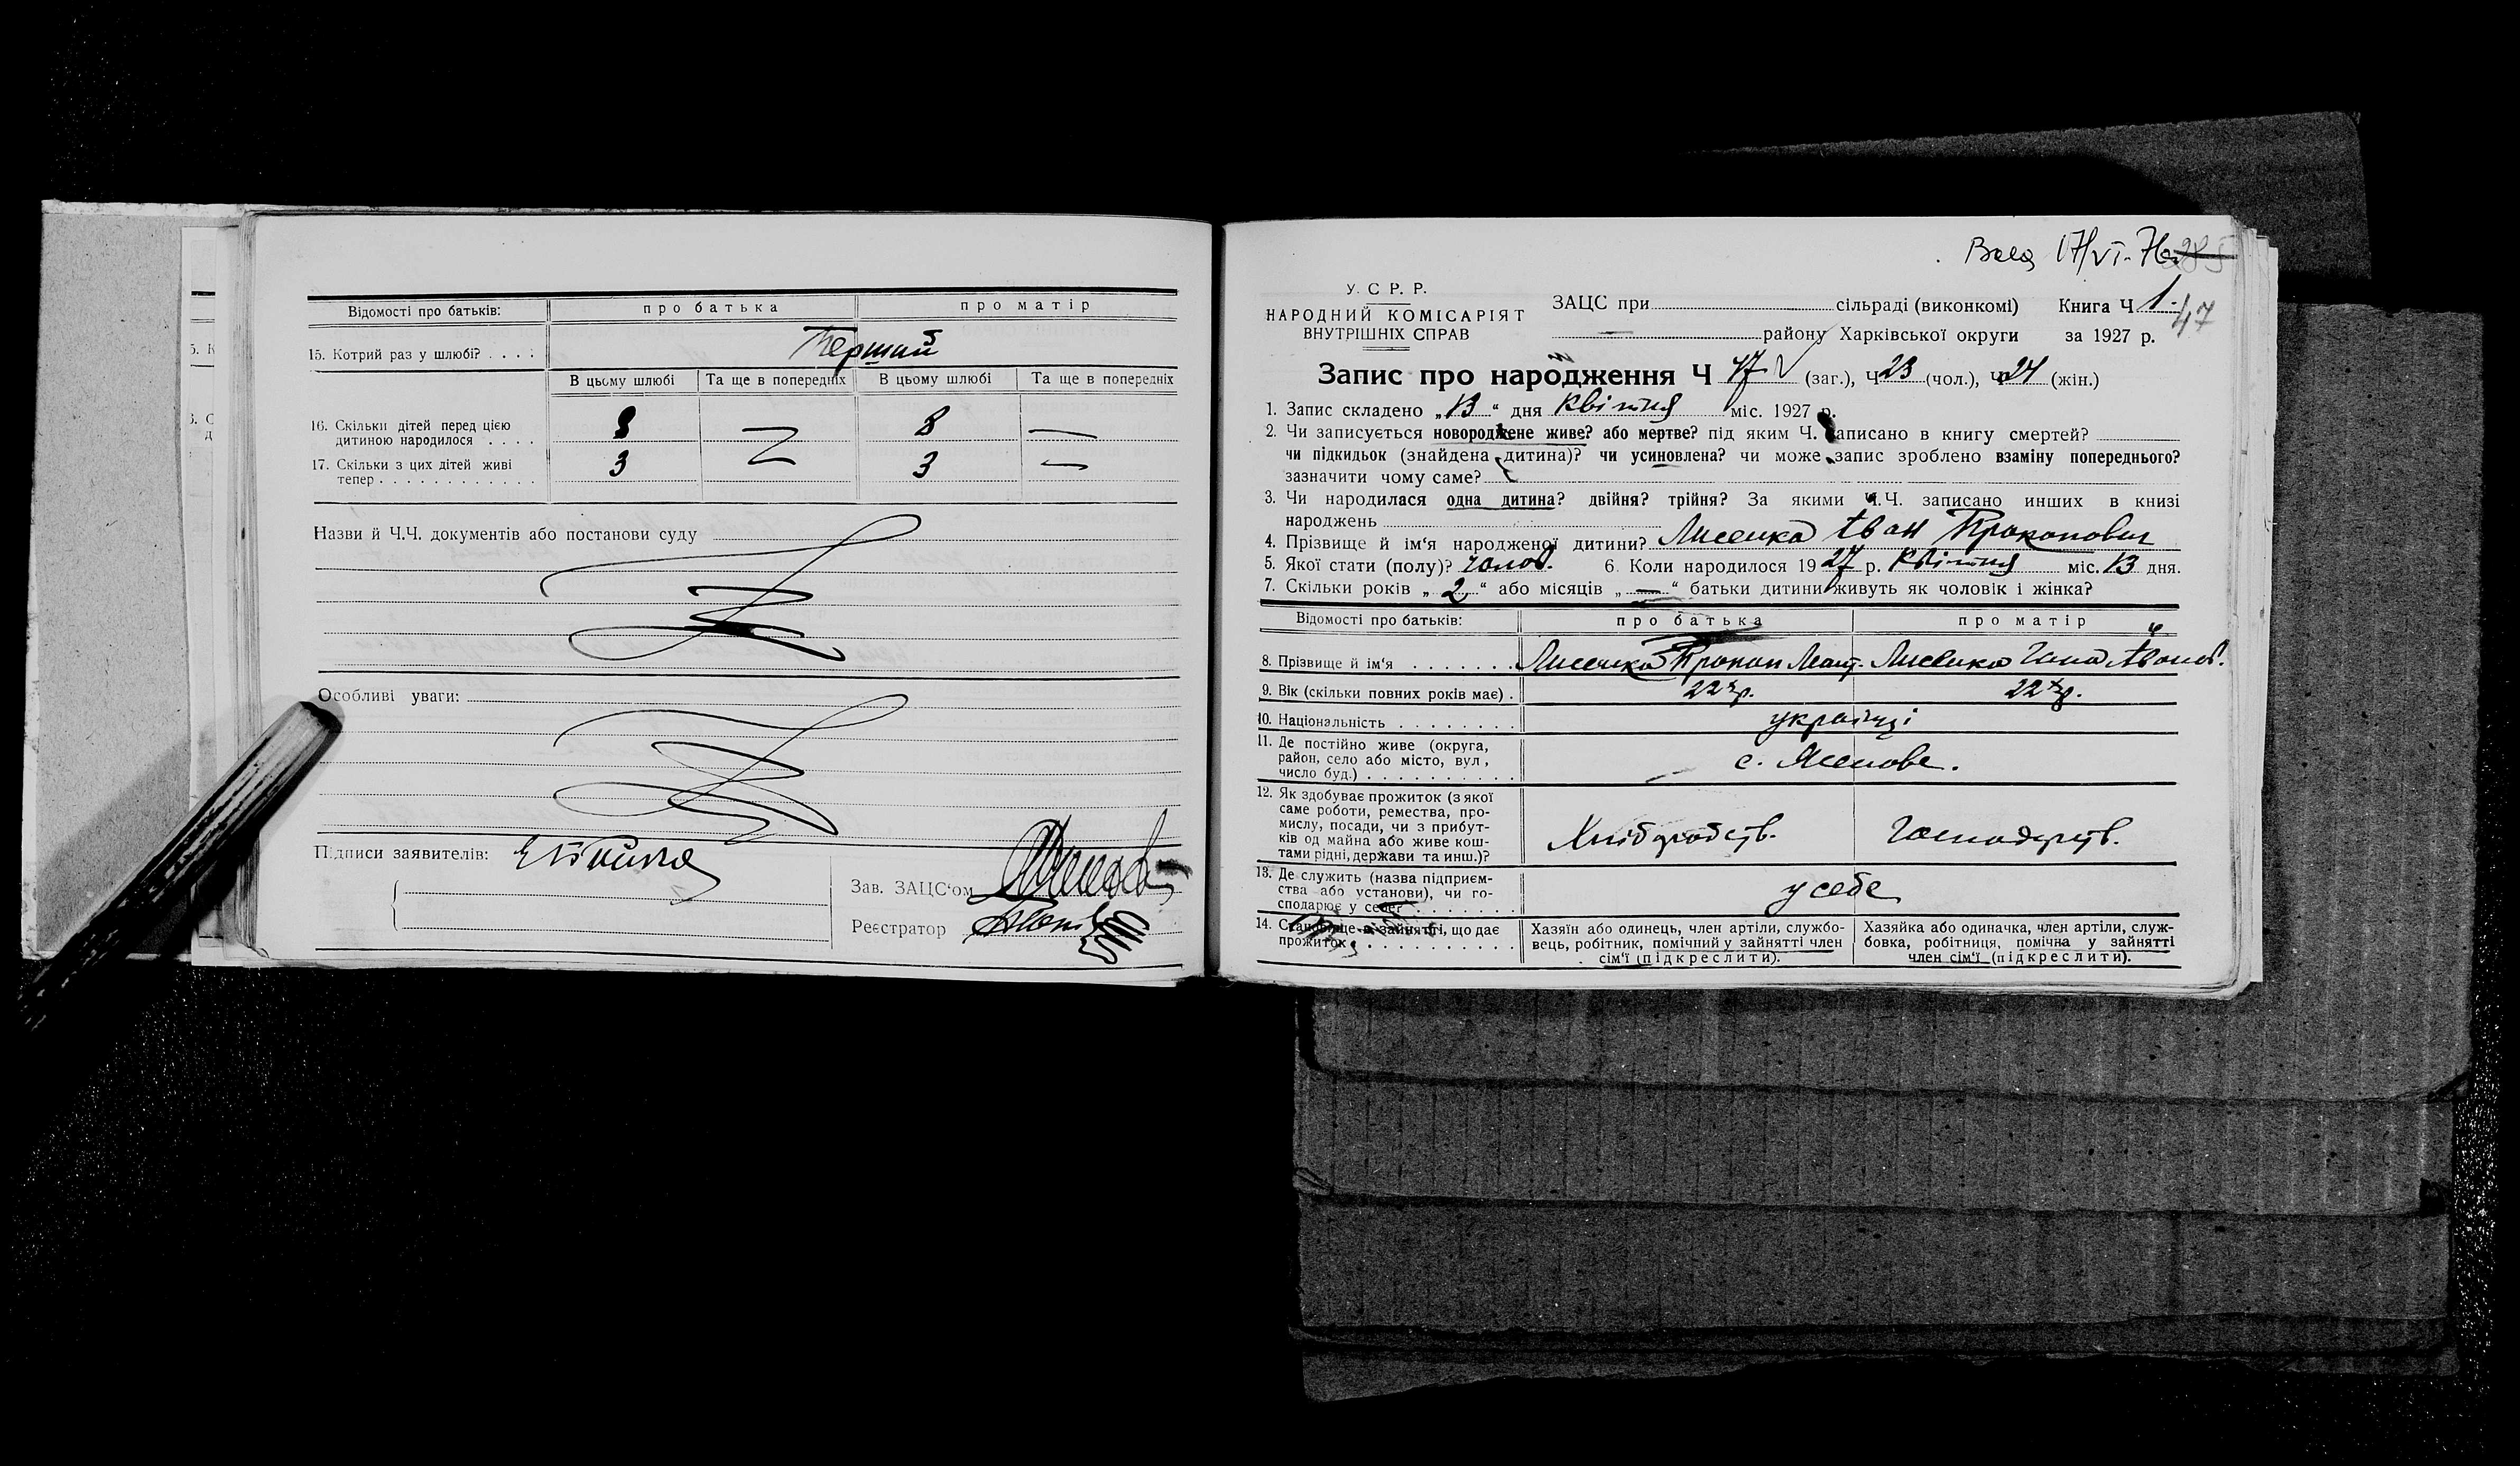 Відомості про батьків: про батька про матір
15. Котрий раз у шлюбі? . . . . Перший
В цьому шлюбі Та ще в попередніх В цьому шлюбі Та ще в попередніх
16. Скільки дітей перед цією
дитиною народилося . . . . 8 — 8 —
17. Скільки з цих дітей живі
тепер . . . . . . . . . . . . 3 — 3 —
Назви й Ч.Ч. документів або постанови суду
Особливі уваги:
Підписи заявителів:
Зав. ЗАЦС‘ом
Реєстратор
17/VI-76
У. С Р. Р.
НАРОДНИЙ КОМІСАРІЯТ
ВНУТРІШНІХ СПРАВ
ЗАЦС при сільраді (виконкомі) Книга Ч 1.
47
— району Харківської округи за 1927 р.
Запис про народження Ч 47 (заг.), Ч 23 (чол.), Ч 24 (жін.)
1. Запис складено „13“ дня квітня міс. 1927 р.
2. Чи записується новороджене живе? або мертве? під яким Ч. записано в книгу смертей?
чи підкидьок (знайдена дитина)? чи усиновлена? чи може запис зроблено взаміну попереднього?
зазначити чому саме?
3. Чи народилася одна дитина? двійня? трійня? За якими Ч.Ч. записано инших в книзі
народжень
4. Прізвище й ім‘я народженої дитини? Лисенко Іван Прокопович
5. Якої стати (полу)? чолов. 6. Коли народилося 1927 р. квітня міс. 13 дня.
7. Скільки років „2“ або місяців „—“ батьки дитини живуть як чоловік і жінка?
Відомості про батьків: про батька про матір
8. Прізвище й ім‘я . . . . . . . Лисенко Прокоп Лисенко Ганна Іванов.
9. Вік (скільки повних років має) . 22 р. 22 р.
10. Національність . . . . . . . . українці
11. Де постійно живе (округа,
район, село або місто, вул,
число буд.) . . . . . . . . . . с. Ясенове.
12. Як здобуває прожиток (з якої
саме роботи, ремества, про-
мислу, посади, чи з прибут-
ків од майна або живе кош-
тами рідні, держави та инш.)? Хліборобств. Господарств.
13. Де служить (назва підприєм-
ства або установи), чи го-
сподарює у себе? . . . . . . . у себе
14. Становище в зайнятті, що дає
прожиток . . . . . . . . . . .
Хазяїн або одинець, член артіли, службо-
вець, робітник, помічний у зайнятті член
сім‘ї (підкреслити).
Хазяйка або одиначка, член артіли, служ-
бовка, робітниця, помічна у зайнятті
член сім‘ї (підкреслити).